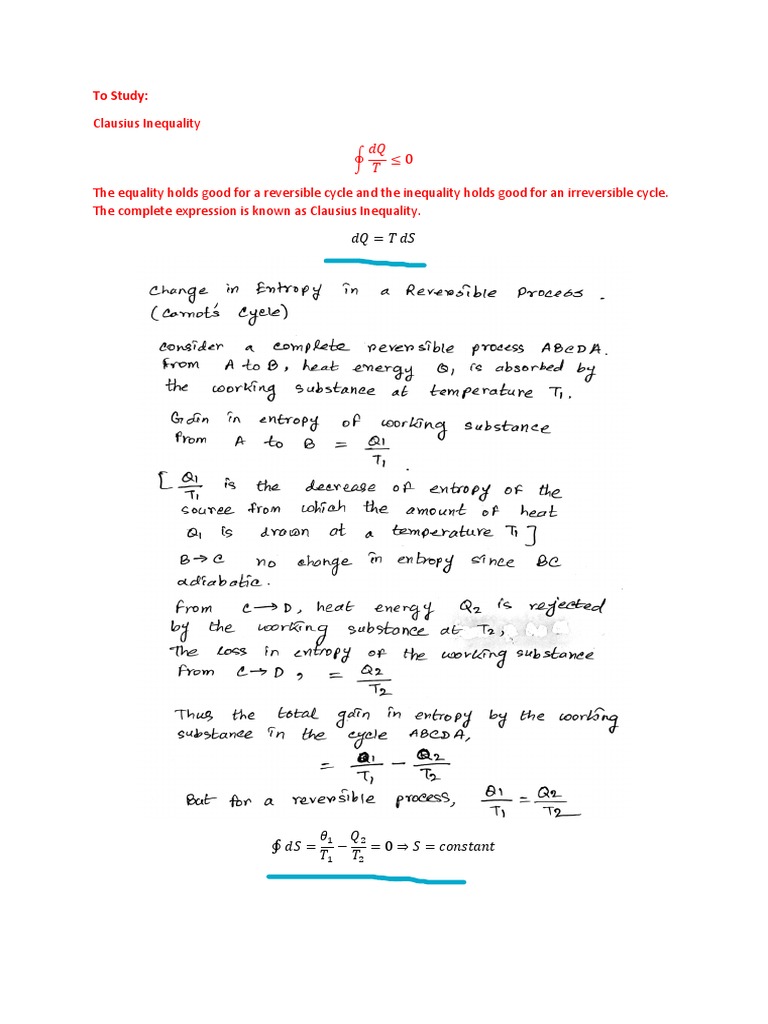 To Study:
Clausius Inequality
∮ dQ/T ≤ 0
The equality holds good for a reversible cycle and the inequality holds good for an irreversible cycle.
The complete expression is known as Clausius Inequality.
dQ = T dS
Change in Entropy in a Reversible Process.
(Carnot's Cycle)
Consider a complete reversible process ABCDA.
From A to B, heat energy Q₁ is absorbed by
the working substance at temperature T₁.
Gain in entropy of working substance
from A to B = Q₁/T₁.
[Q₁/T₁ is the decrease of entropy of the
source from which the amount of heat
Q₁ is drawn at a temperature T₁]
B→C no change in entropy since BC
adiabatic.
From C→D, heat energy Q₂ is rejected
by the working substance at T₂,
The loss in entropy of the working substance
from C→D, = Q₂/T₂
Thus the total gain in entropy by the working
substance in the cycle ABCDA,
= Q₁/T₁ − Q₂/T₂
But for a reversible process, Q₁/T₁ = Q₂/T₂
∮ dS = θ₁/T₁ − Q₂/T₂ = 0 ⇒ S = constant